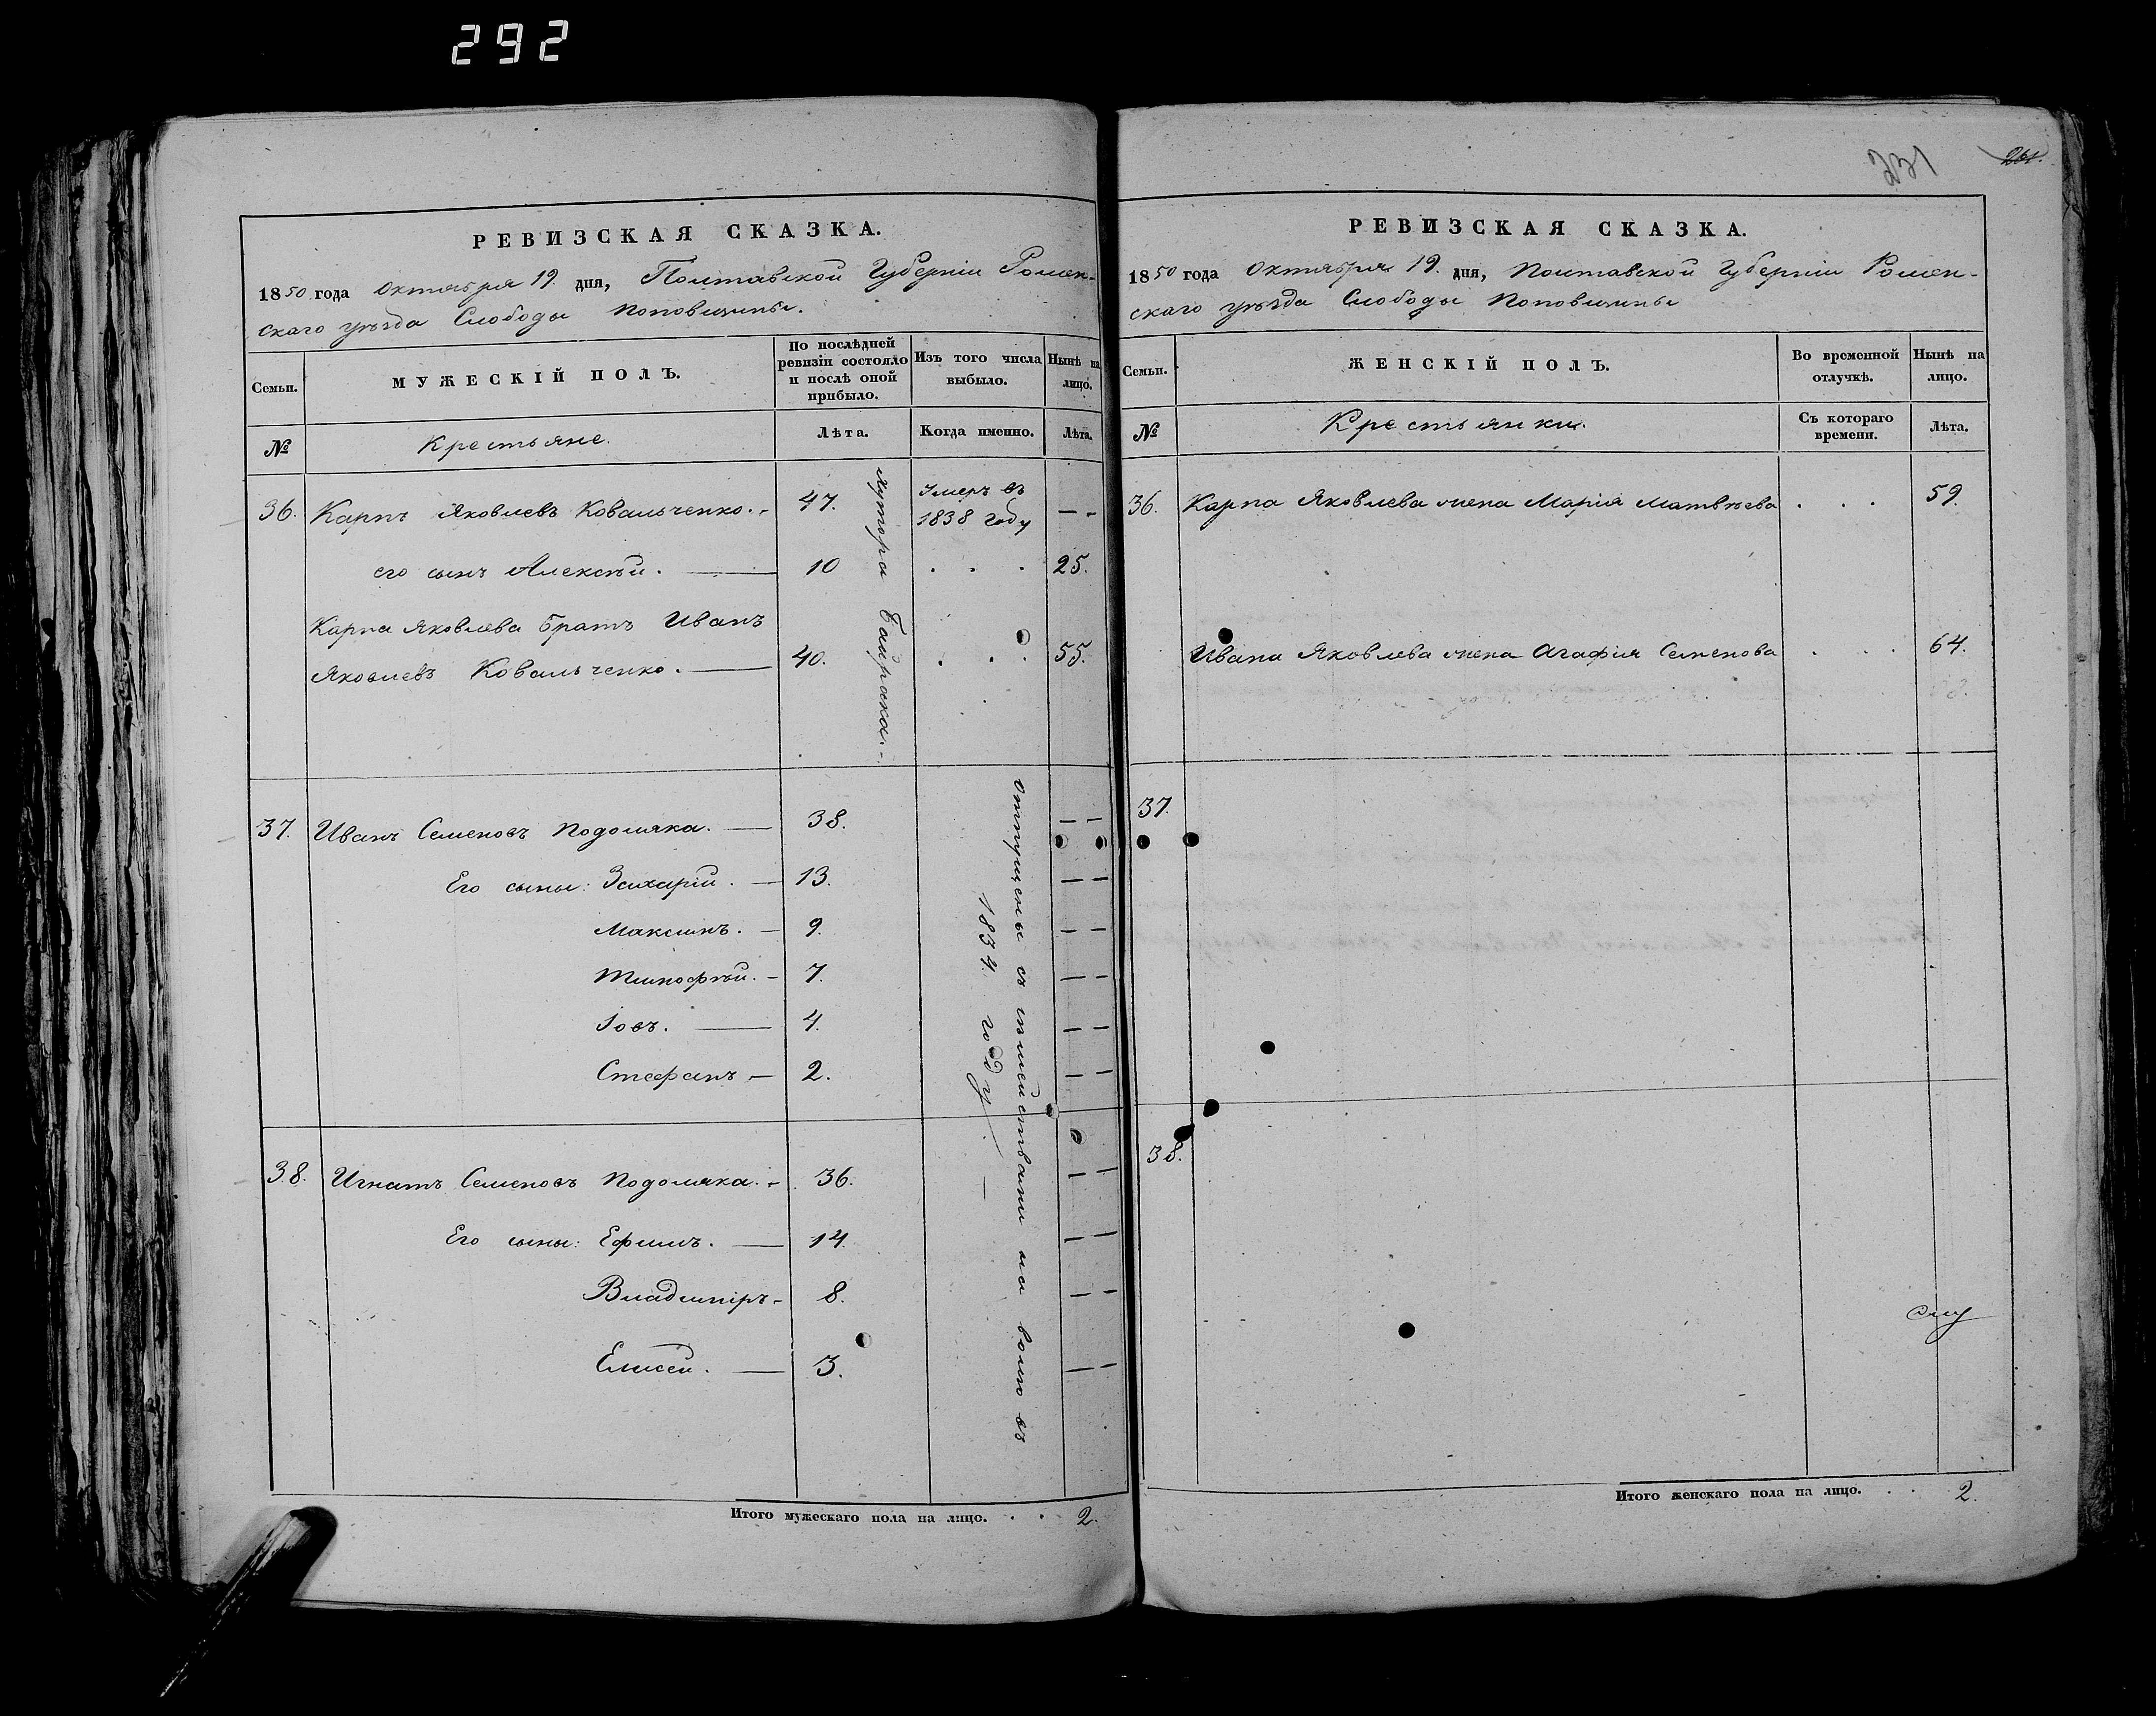 292
РЕВИЗСКАЯ СКАЗКА.
1850 года Октября 19. дня, Полтавской Губерніи Ромен-
скаго уѣзда Слободы Поповщины.
Семьи.
МУЖЕСКІЙ ПОЛЪ.
По послѣдней ревизіи состояло и послѣ оной прибыло.
Изъ того числа выбыло.
Нынѣ на лицо.
№
Крестьяне.
Лѣта.
Когда именно.
Лѣта.
36. Карпъ Яковлевъ Ковальченко. 47. Умеръ въ 1838 году — -
его сынъ Алексѣй. 10 . . . 25.
Карпа Яковлева братъ Иванъ
Яковлевъ Ковальченко. 40. . . . 55.
хутора Байрака.
37. Иванъ Семеновъ Подоляка. 38. — —
Его сыны: Захарій. 13. — —
Максимъ. 9. — —
Тимофѣй. 7. — —
Іовъ. 4. — —
Стефанъ 2. — —
38. Игнатъ Семеновъ Подоляка. 36. — —
Его сыны: Ефимъ. 14. — —
Владиміръ 8. — —
Елисей. 3. — —
отпущены съ семействами на волю въ
1834 году.
Итого мужескаго пола на лицо. . . 2.
231
261.
РЕВИЗСКАЯ СКАЗКА.
1850 года Октября 19. дня, Полтавской Губерніи Ромен-
скаго уѣзда Слободы Поповщины
Семьи.
ЖЕНСКІЙ ПОЛЪ.
Во временной отлучкѣ.
Нынѣ на лицо.
№
Крестьянки.
Съ котораго времени.
Лѣта.
36. Карпа Яковлева жена Марія Матвѣева . . . 59.
Ивана Яковлева жена Агафія Семенова . . . 64.
37.
38.
Итого женскаго пола на лицо. . . 2.